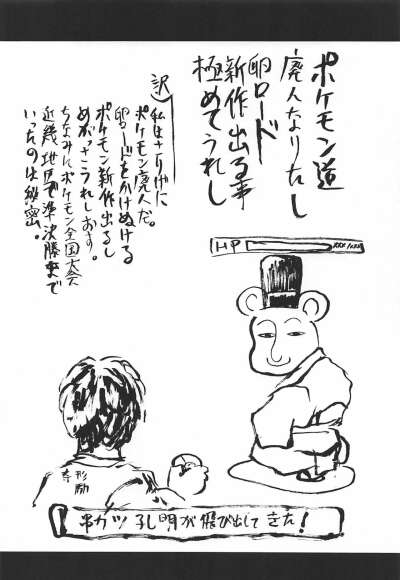 ポケモン道
廃人なりたし
卵ロード
新作出る事
極めてうれし
訳)私はさりげに
ポケモン廃人だ。
卵ロードをかけぬける
ポケモン新作出るし
めがっさうれしおす。
ちなみにポケモン全国大会
近畿地区で準決勝まで
いったのは秘密。
HP
串カツ 孔明が飛び出してきた!